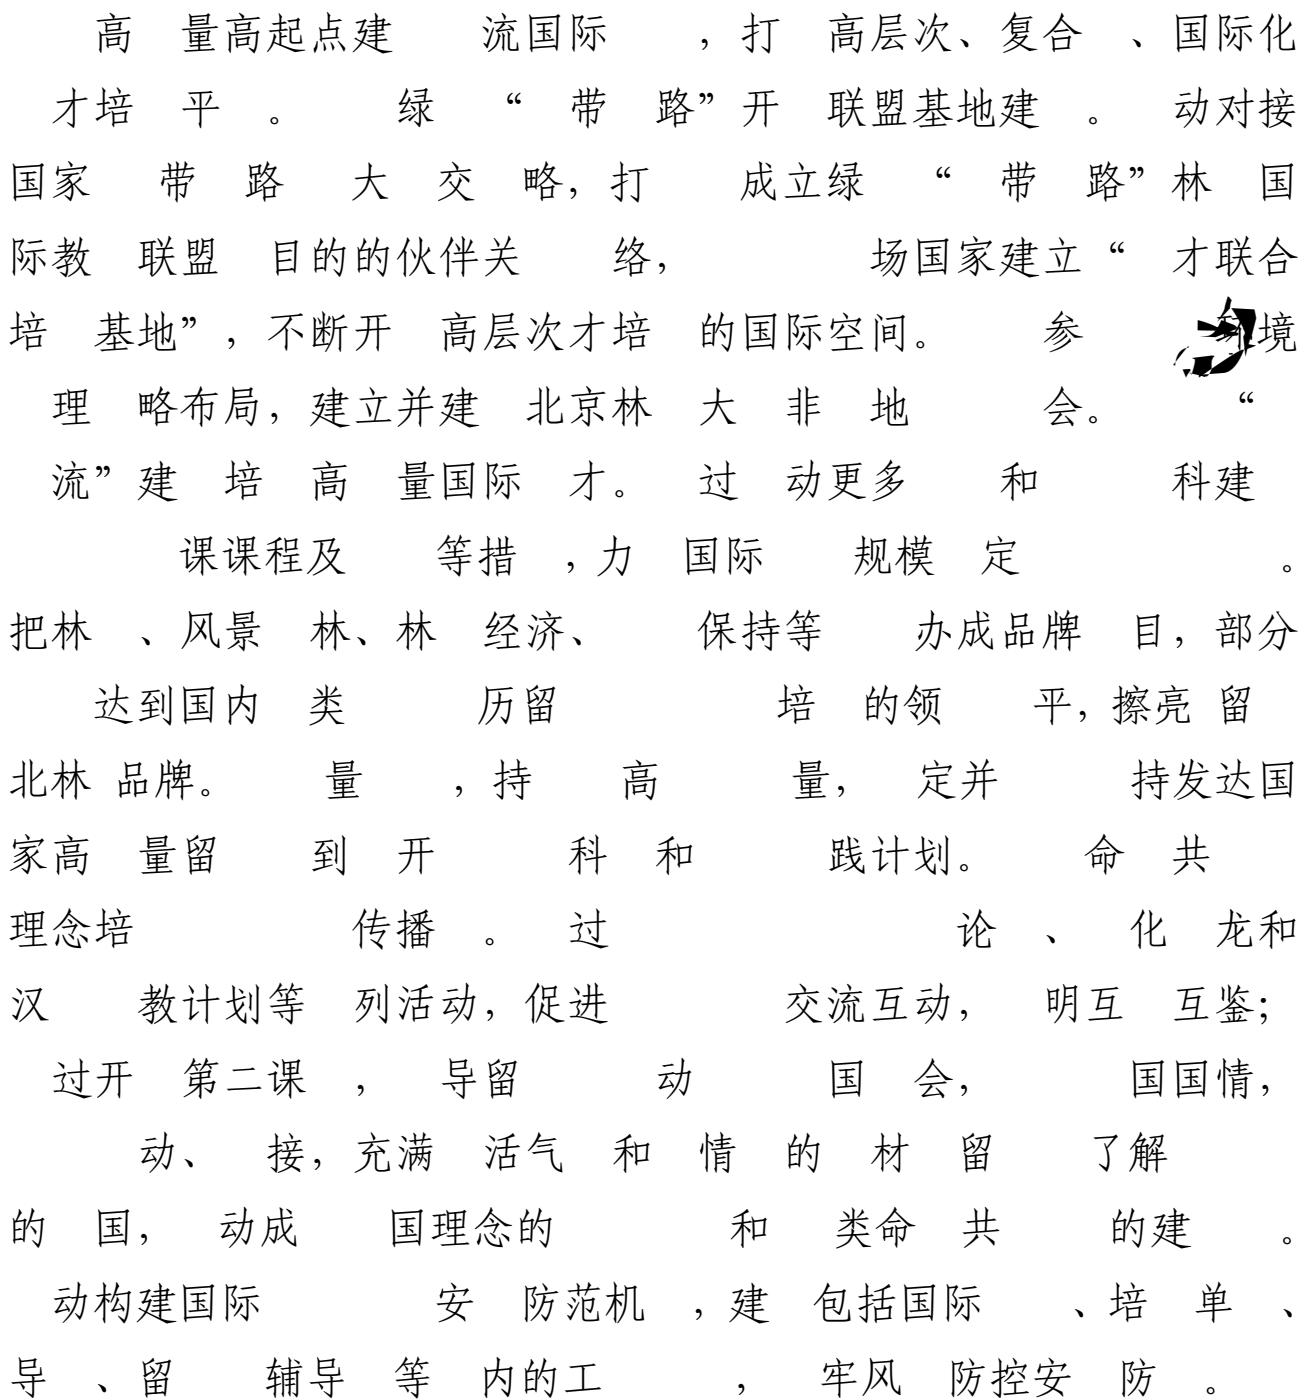 高 量高起点建 流国际 ，打 高层次、复合 、国际化
才培 平 。 绿 “ 带 路”开 联盟基地建 。 动对接
国家 带 路 大 交 略，打 成立绿 “ 带 路”林 国
际教 联盟 目的的伙伴关 络， 场国家建立“ 才联合
培 基地”，不断开 高层次才培 的国际空间。 参 环境
理 略布局，建立并建 北京林 大 非 地 会。 “
流”建 培 高 量国际 才。 过 动更多 和 科建
课课程及 等措 ，力 国际 规模 定 。
把林 、风景 林、林 经济、 保持等 办成品牌 目，部分
达到国内 类 历留 培 的领 平，擦亮 留
北林 品牌。 量 ，持 高 量， 定并 持发达国
家高 量留 到 开 科 和 践计划。 命 共
理念培 传播 。 过 论 、 化 龙和
汉 教计划等 列活动，促进 交流互动， 明互 互鉴；
过开 第二课 ， 导留 动 国 会， 国国情，
动、 接，充满 活气 和 情 的 材 留 了解
的 国， 动成 国理念的 和 类命 共 的建 。
动构建国际 安 防范机 ，建 包括国际 、培 单 、
导 、留 辅导 等 内的工 ， 牢风 防控安 防 。